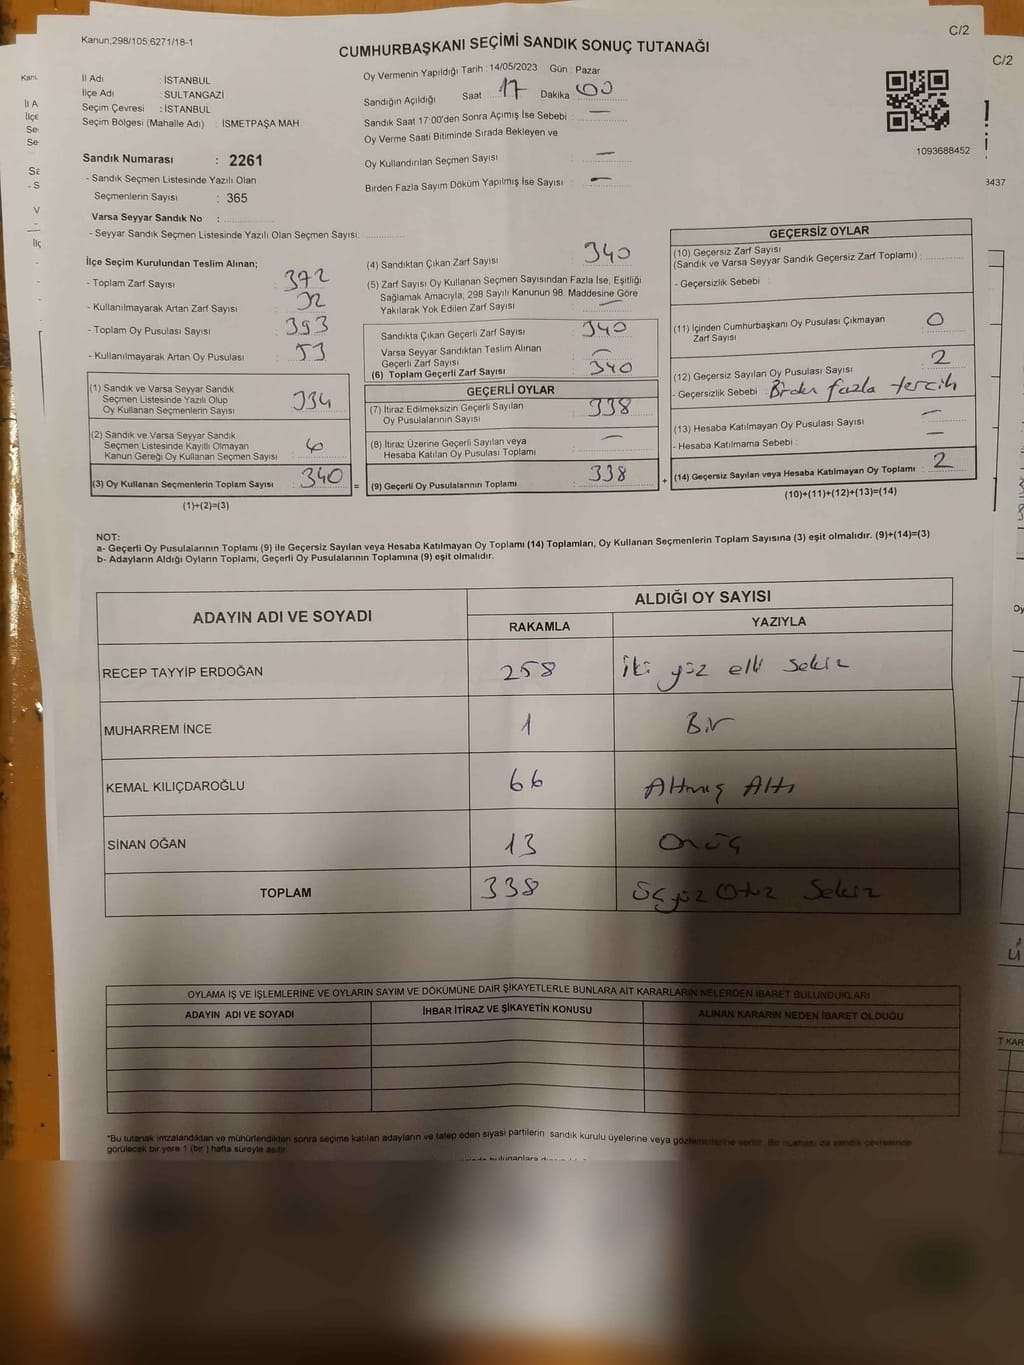 Kanun;298/105;6271/18-1
C/2
CUMHURBAŞKANI SEÇİMİ SANDIK SONUÇ TUTANAĞI
İl Adı : İSTANBUL
İlçe Adı : SULTANGAZİ
Seçim Çevresi : İSTANBUL
Seçim Bölgesi (Mahalle Adı) : İSMETPAŞA MAH.
Oy Vermenin Yapıldığı Tarih : 14/05/2023 Gün : Pazar
Sandığın Açıldığı Saat 17 Dakika 00
Sandık Saat 17:00'den Sonra Açılmış İse Sebebi : —
Oy Verme Saati Bitiminde Sırada Bekleyen ve
Oy Kullandırılan Seçmen Sayısı : —
Birden Fazla Sayım Döküm Yapılmış İse Sayısı : —
1093688452
Sandık Numarası : 2261
- Sandık Seçmen Listesinde Yazılı Olan
Seçmenlerin Sayısı : 365
Varsa Seyyar Sandık No :
- Seyyar Sandık Seçmen Listesinde Yazılı Olan Seçmen Sayısı:
İlçe Seçim Kurulundan Teslim Alınan;
- Toplam Zarf Sayısı : 372
- Kullanılmayarak Artan Zarf Sayısı : 32
- Toplam Oy Pusulası Sayısı : 393
- Kullanılmayarak Artan Oy Pusulası : 53
(1) Sandık ve Varsa Seyyar Sandık
Seçmen Listesinde Yazılı Olup
Oy Kullanan Seçmenlerin Sayısı : 334
(2) Sandık ve Varsa Seyyar Sandık
Seçmen Listesinde Kayıtlı Olmayan
Kanun Gereği Oy Kullanan Seçmen Sayısı : 6
(3) Oy Kullanan Seçmenlerin Toplam Sayısı : 340
(1)+(2)=(3)
(4) Sandıktan Çıkan Zarf Sayısı : 340
(5) Zarf Sayısı Oy Kullanan Seçmen Sayısından Fazla İse, Eşitliği
Sağlamak Amacıyla, 298 Sayılı Kanunun 98. Maddesine Göre
Yakılarak Yok Edilen Zarf Sayısı : —
Sandıkta Çıkan Geçerli Zarf Sayısı : 340
Varsa Seyyar Sandıktan Teslim Alınan
Geçerli Zarf Sayısı : —
(6) Toplam Geçerli Zarf Sayısı : 340
GEÇERLİ OYLAR
(7) İtiraz Edilmeksizin Geçerli Sayılan
Oy Pusulasının Sayısı : 338
(8) İtiraz Üzerine Geçerli Sayılan veya
Hesaba Katılan Oy Pusulası Toplamı : —
= (9) Geçerli Oy Pusulalarının Toplamı : 338
GEÇERSİZ OYLAR
(10) Geçersiz Zarf Sayısı
(Sandık ve Varsa Seyyar Sandık Geçersiz Zarf Toplamı) :
- Geçersizlik Sebebi :
(11) İçinden Cumhurbaşkanı Oy Pusulası Çıkmayan
Zarf Sayısı : 0
(12) Geçersiz Sayılan Oy Pusulası Sayısı : 2
- Geçersizlik Sebebi : Birden fazla tercih
(13) Hesaba Katılmayan Oy Pusulası Sayısı : —
- Hesaba Katılmama Sebebi : —
+ (14) Geçersiz Sayılan veya Hesaba Katılmayan Oy Toplamı : 2
(10)+(11)+(12)+(13)=(14)
NOT:
a- Geçerli Oy Pusulalarının Toplamı (9) ile Geçersiz Sayılan veya Hesaba Katılmayan Oy Toplamı (14) Toplamları, Oy Kullanan Seçmenlerin Toplam Sayısına (3) eşit olmalıdır. (9)+(14)=(3)
b- Adayların Aldığı Oyların Toplamı, Geçerli Oy Pusulalarının Toplamına (9) eşit olmalıdır.
ADAYIN ADI VE SOYADI
ALDIĞI OY SAYISI
RAKAMLA YAZIYLA
RECEP TAYYİP ERDOĞAN 258 iki yüz elli sekiz
MUHARREM İNCE 1 Bir
KEMAL KILIÇDAROĞLU 66 Altmış Altı
SİNAN OĞAN 13 Onüç
TOPLAM 338 Üçyüz Otuz Sekiz
OYLAMA İŞ VE İŞLEMLERİNE VE OYLARIN SAYIM VE DÖKÜMÜNE DAİR ŞİKAYETLERLE BUNLARA AİT KARARLARIN NELERDEN İBARET BULUNDUKLARI
ADAYIN ADI VE SOYADI İHBAR İTİRAZ VE ŞİKAYETİN KONUSU ALINAN KARARIN NEDEN İBARET OLDUĞU
*Bu tutanak imzalandıktan ve mühürlendikten sonra seçime katılan adayların ve talep eden siyasi partilerin sandık kurulu üyelerine veya gözlemcilerine verilir. Bir nüshası da sandık çevresinde
görülecek bir yere 1 (bir) hafta süreyle asılır.
C/2
3437